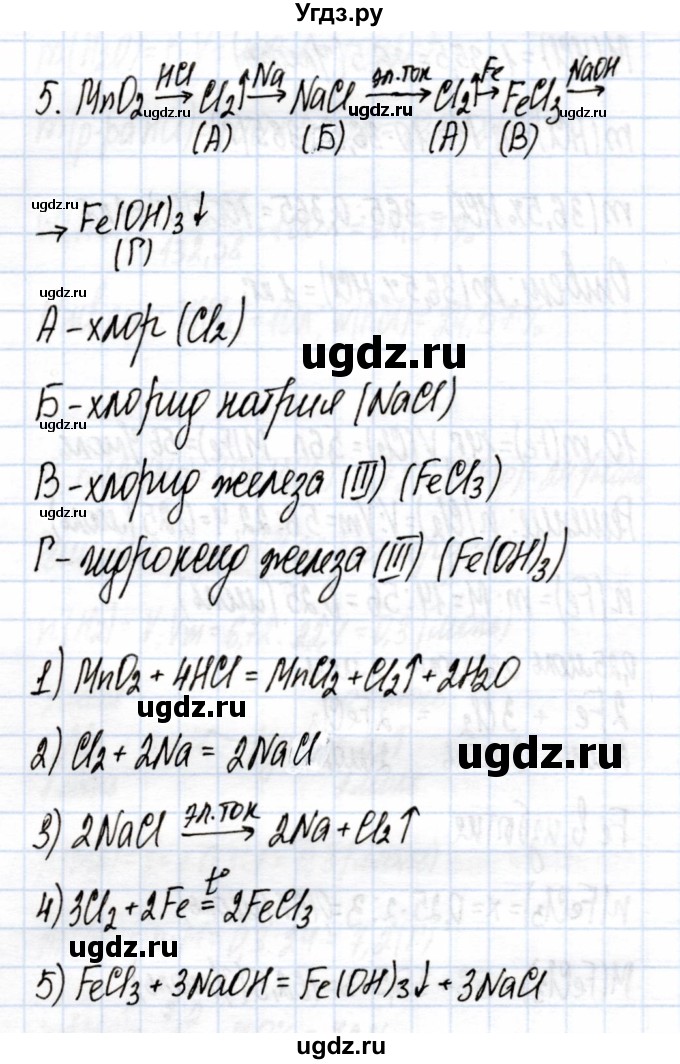 Угдз.ру
5. MnO2 —HCl→ Cl2↑ —Na→ NaCl —эл.ток→ Cl2↑ —Fe→ FeCl3 —NaOH→
(А) (Б) (А) (В)
ugdz.ru ugdz.ru ugdz.ru ugdz.ru
ugdz.ru
→ Fe(OH)3↓
(Г)
ugdz.ru
А - хлор (Cl2)
ugdz.ru
Б - хлорид натрия (NaCl)
В - хлорид железа (III) (FeCl3)
ugdz.ru
Г - гидроксид железа (III) (Fe(OH)3)
1) MnO2 + 4HCl = MnCl2 + Cl2↑ + 2H2O
ugdz.ru
2) Cl2 + 2Na = 2NaCl
ugdz.ru
3) 2NaCl —эл.ток→ 2Na + Cl2↑
4) 3Cl2 + 2Fe =t°= 2FeCl3
ugdz.ru
5) FeCl3 + 3NaOH = Fe(OH)3↓ + 3NaCl
ugdz.ru